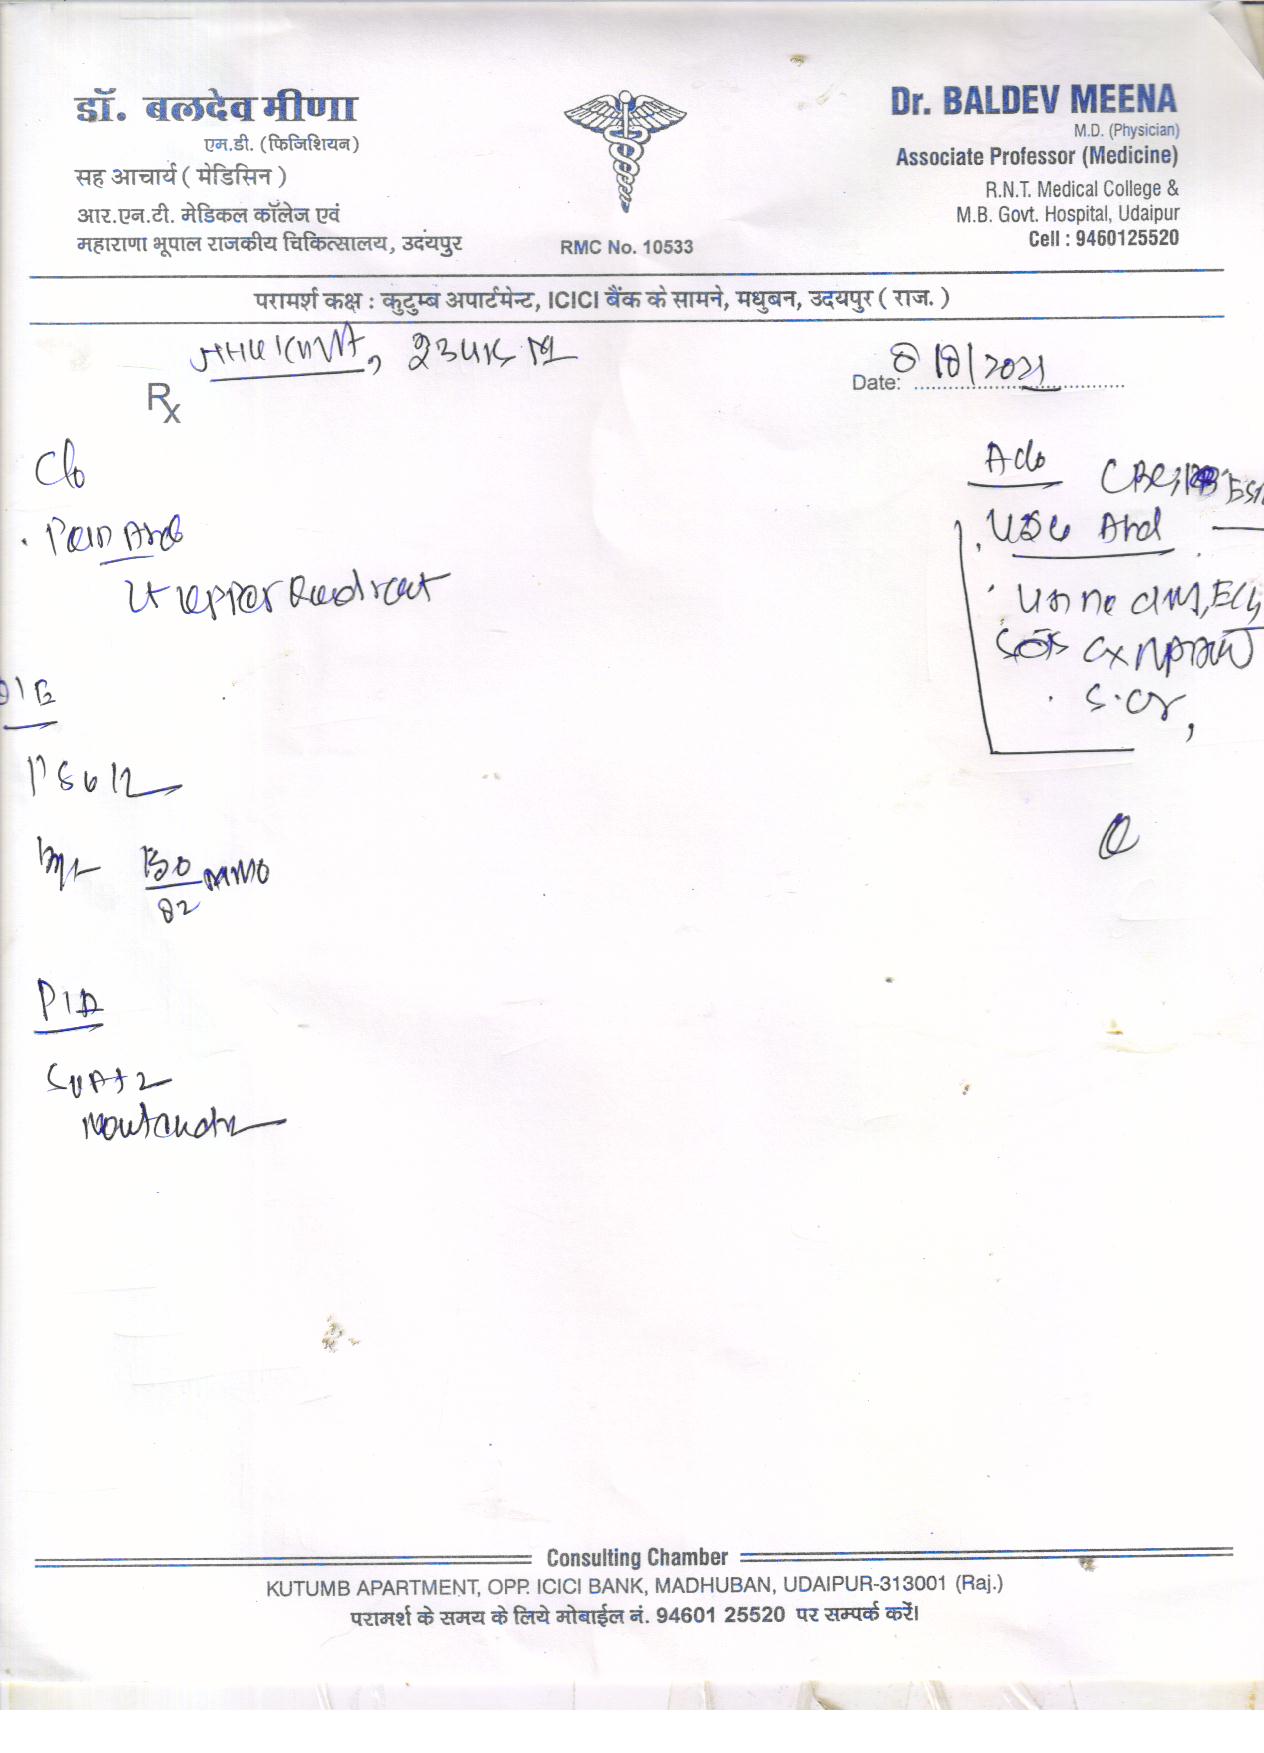 डॉ. बलदेव मीणा
एम.डी. (फिजिशियन)
सह आचार्य ( मेडिसिन )
आर.एन.टी. मेडिकल कॉलेज एवं
महाराणा भूपाल राजकीय चिकित्सालय, उदंयपुर
RMC No. 10533
Dr. BALDEV MEENA
M.D. (Physician)
Associate Professor (Medicine)
R.N.T. Medical College &
M.B. Govt. Hospital, Udaipur
Cell : 9460125520
परामर्श कक्ष : कुटुम्ब अपार्टमेन्ट, ICICI बैंक के सामने, मधुबन, उदयपुर ( राज. )
Date: 8/8/2021
Rx
C/o
Pain Abd
Lt upper Quadrant
O/E
130/82 mmHg
P/A
Soft
Adv
CBC, ESR
USG Abd
S. Cr,
Consulting Chamber
KUTUMB APARTMENT, OPP. ICICI BANK, MADHUBAN, UDAIPUR-313001 (Raj.)
परामर्श के समय के लिये मोबाईल नं. 94601 25520 पर सम्पर्क करें।